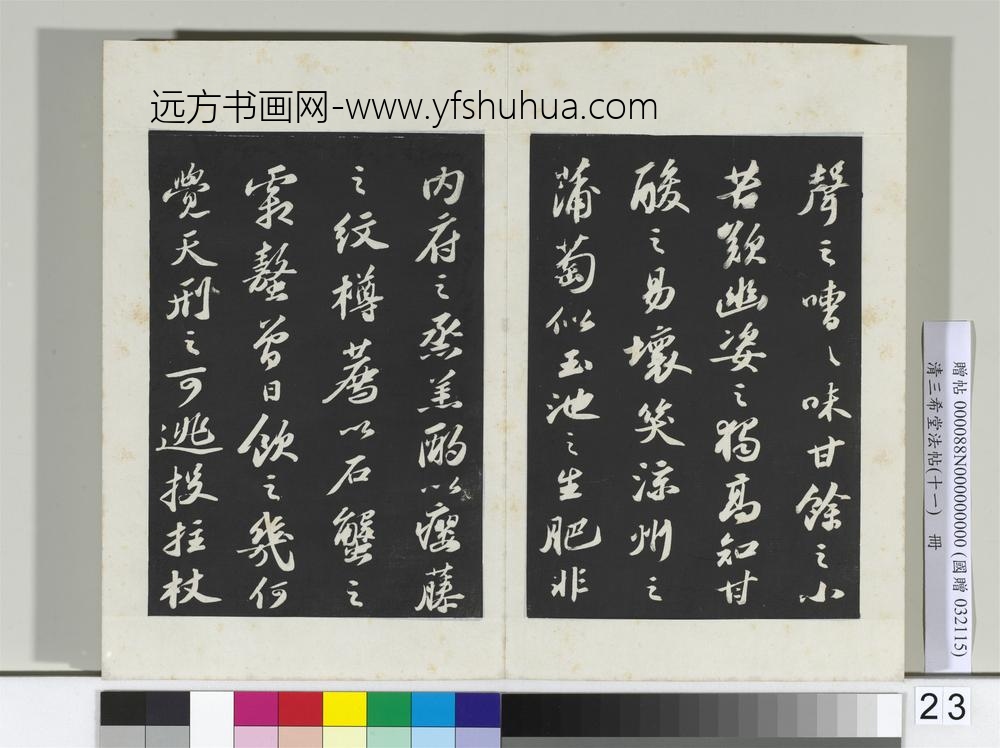 远方书画网-www.yfshuhua.com
聲之嘈〻味甘餘之小
苦歎幽姿之獨高知甘
酸之易壞笑涼州之
蒲萄似玉池之生肥非
內府之烝羔酌以癭藤
之紋樽薦以石蟹之
霜螯曾日飲之幾何
覺天刑之可逃投拄杖
贈帖 000088N000000000 (國贈 032115)
清三希堂法帖(十一) 冊
23